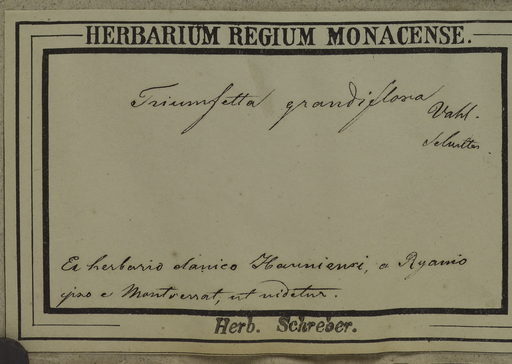 HERBARIUM REGIUM MONACENSE.
Triumfetta grandiflora
Vahl.
Schultes.
Ex herbario danico Hauniensi, a Ryanio
ipso e Montserrat, ut videtur.
Herb. Schreber.